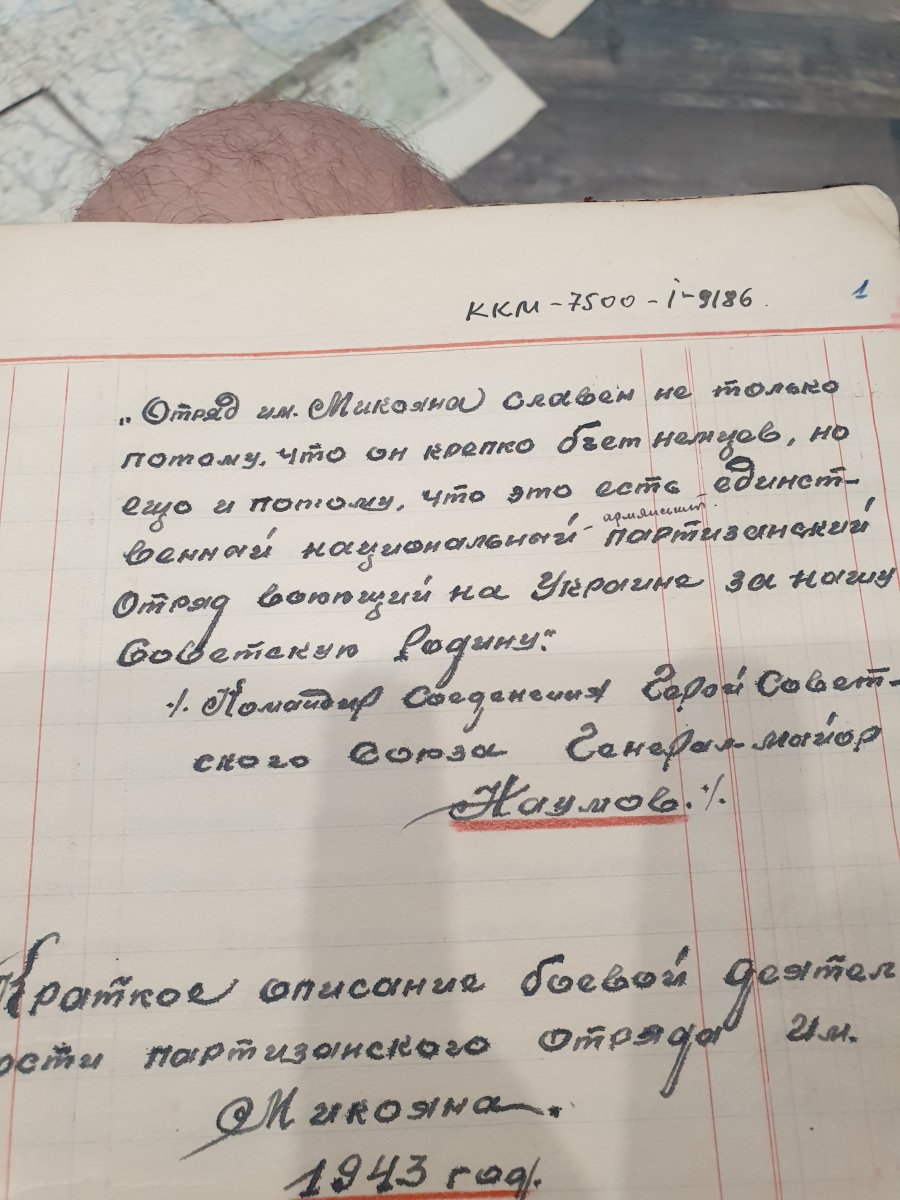 ККМ-7500-і-9186
1
„Отряд им. Микояна славен не только
потому, что он крепко бьет немцев, но
ещо и потому, что это есть единст-
армянский
венный национальный партизанский
Отряд воюющий на Украине за нашу
Советскую Родину".
/. Командир Соеденения Герой Совет-
ского Союза Генерал-майор
Наумов. /.
Краткое описание боевой деятел
ости партизанского отряда им.
Микояна.
1943 год.